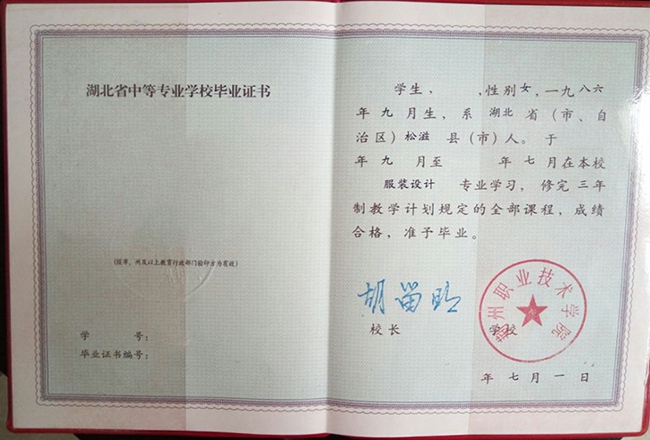 湖北省中等专业学校毕业证书
(经市、州及以上教育行政部门验印方为有效)
学 号:
毕业证书编号:
学生、 ,性别女,一九八六
年九月生,系湖北省(市、自
治区)松滋县(市)人。于
年九月至 年七月在本校
服装设计 专业学习,修完三年
制教学计划规定的全部课程,成绩
合格,准予毕业。
校长
学校
荆州职业技术学院
年七月一日